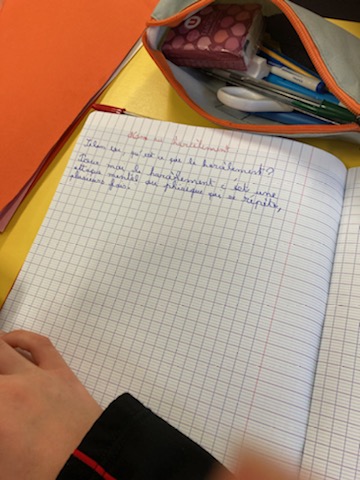 harcèlement
Selon toi qu'est ce que le harcèlement?
Pour moi le harcèlement c'est une
attaque mentés ou phisique qui se répète,
plusieurs fois.